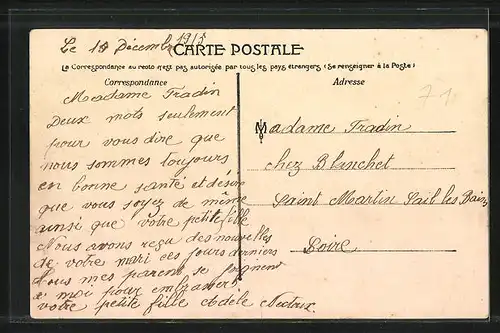 Le 18 Décembre 1915
CARTE POSTALE
La Correspondance au recto n'est pas autorisée par tous les pays étrangers (Se renseigner à la Poste)
Correspondance
Adresse
71
Madame Fradin
Deux mots seulement
pour vous dire que
nous sommes toujours
en bonne santé et désire
que vous soyez de même
ainsi que votre petite fille
Nous avons reçu des nouvelles
de votre mari ces jours derniers
Tous mes parents se joignent
à moi pour embrasser
votre petite fille Adèle
Madame Fradin
chez Blanchet
Saint Martin Sail les Bains
Loire